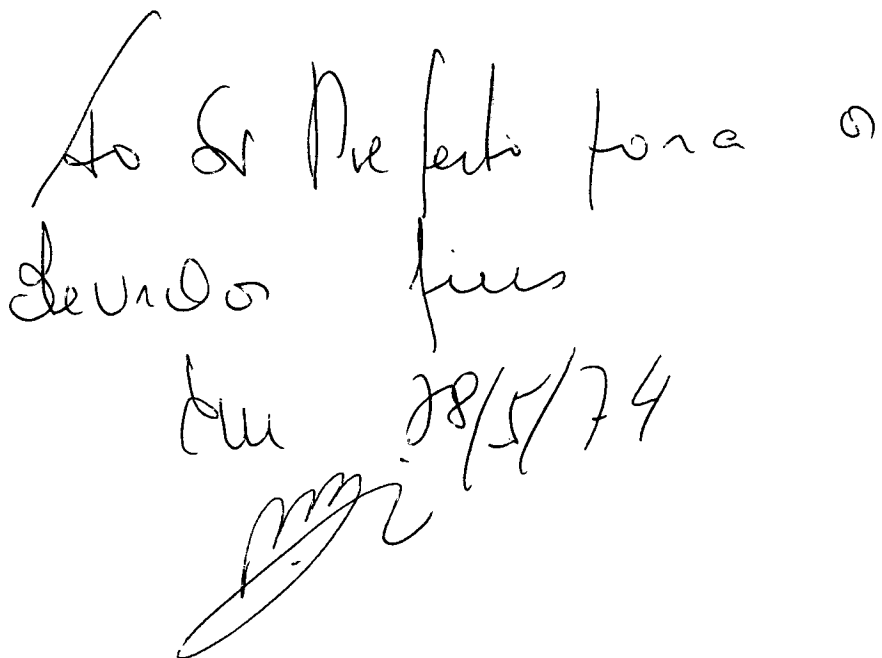 Ao Sr Prefeito para o
devido fins
Em 28/5/74